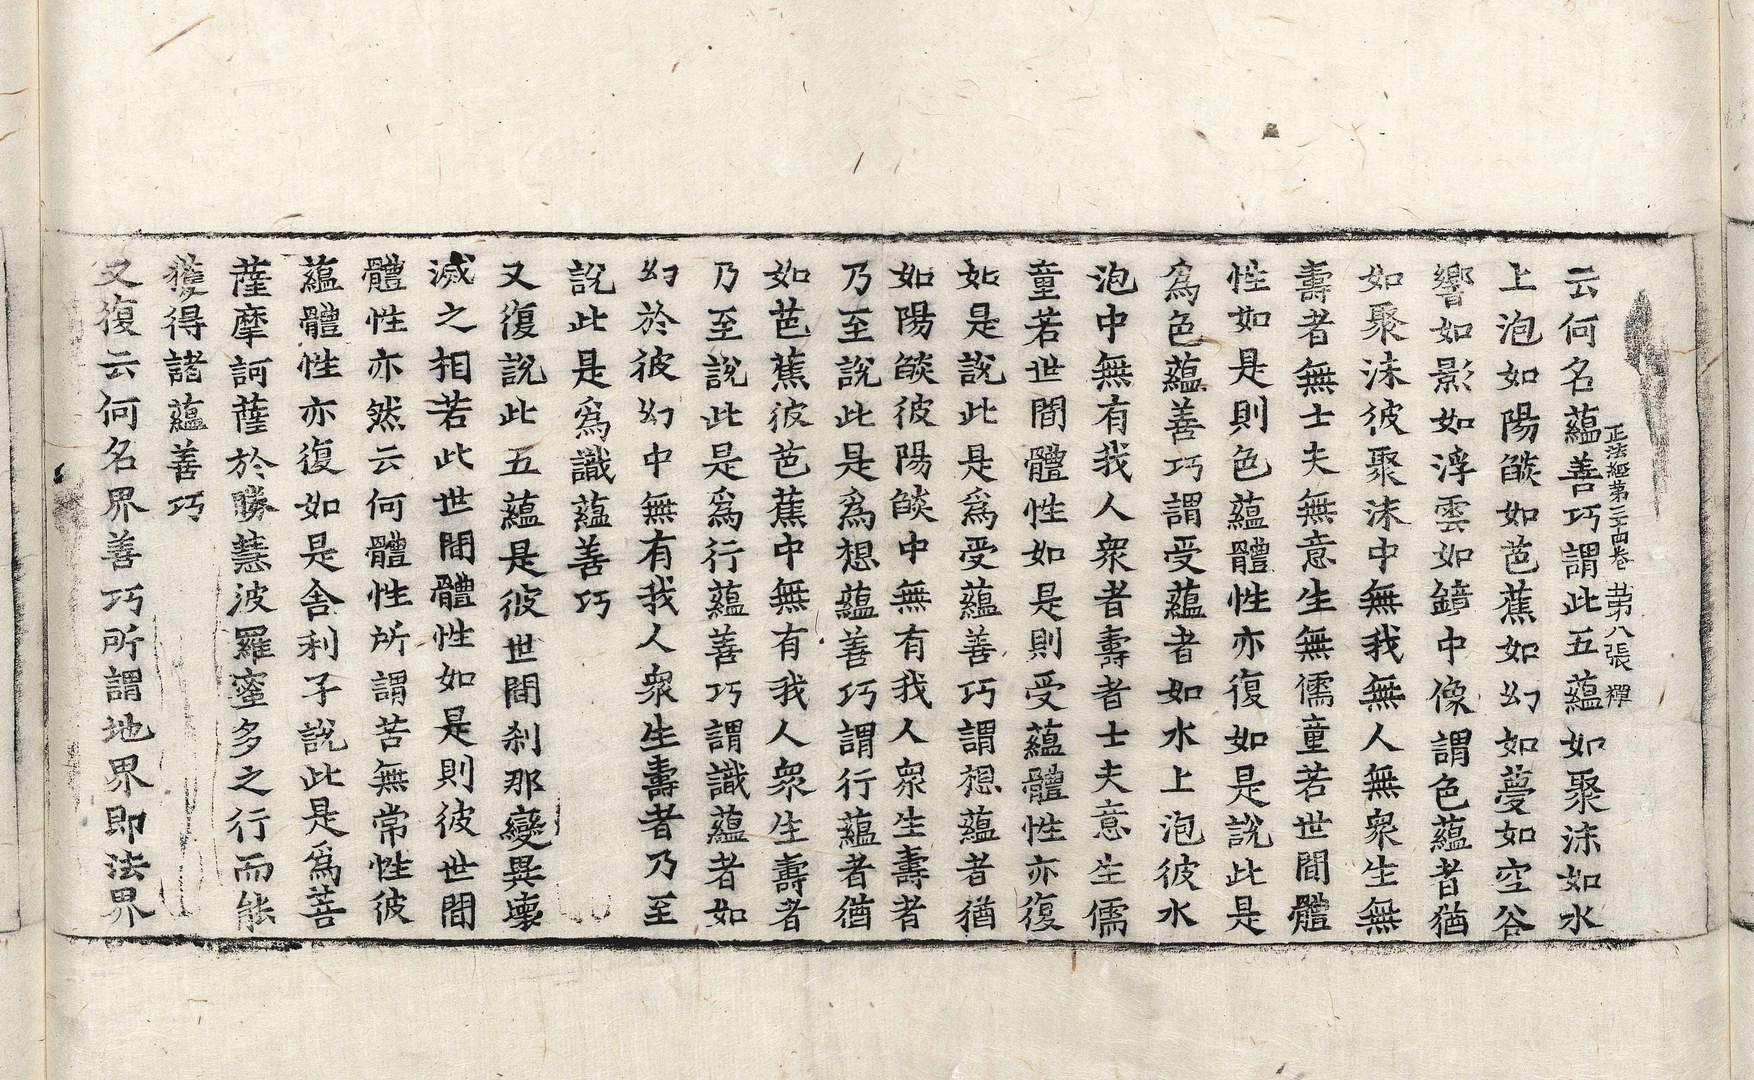 正法經第三十四卷 第八張 禪
云何名蘊善巧謂此五蘊如聚沫如水
上泡如陽燄如芭蕉如幻如夢如空谷
響如影如浮雲如鏡中像謂色蘊者猶
如聚沫彼聚沫中無我無人無衆生無
壽者無士夫無意生無儒童若世間體
性如是則色蘊體性亦復如是說此是
爲色蘊善巧謂受蘊者如水上泡彼水
泡中無有我人衆者壽者士夫意生儒
童若世間體性如是則受蘊體性亦復
如是說此是爲受蘊善巧謂想蘊者猶
如陽燄彼陽燄中無有我人衆生壽者
乃至說此是爲想蘊善巧謂行蘊者猶
如芭蕉彼芭蕉中無有我人衆生壽者
乃至說此是爲行蘊善巧謂識蘊者如
幻於彼幻中無有我人衆生壽者乃至
說此是爲識蘊善巧
又復說此五蘊是彼世間刹那變異壞
滅之相若此世間體性如是則彼世間
體性亦然云何體性所謂苦無常性彼
蘊體性亦復如是舍利子說此是爲菩
薩摩訶薩於勝慧波羅蜜多之行而能
獲得諸蘊善巧
又復云何名界善巧所謂地界即法界